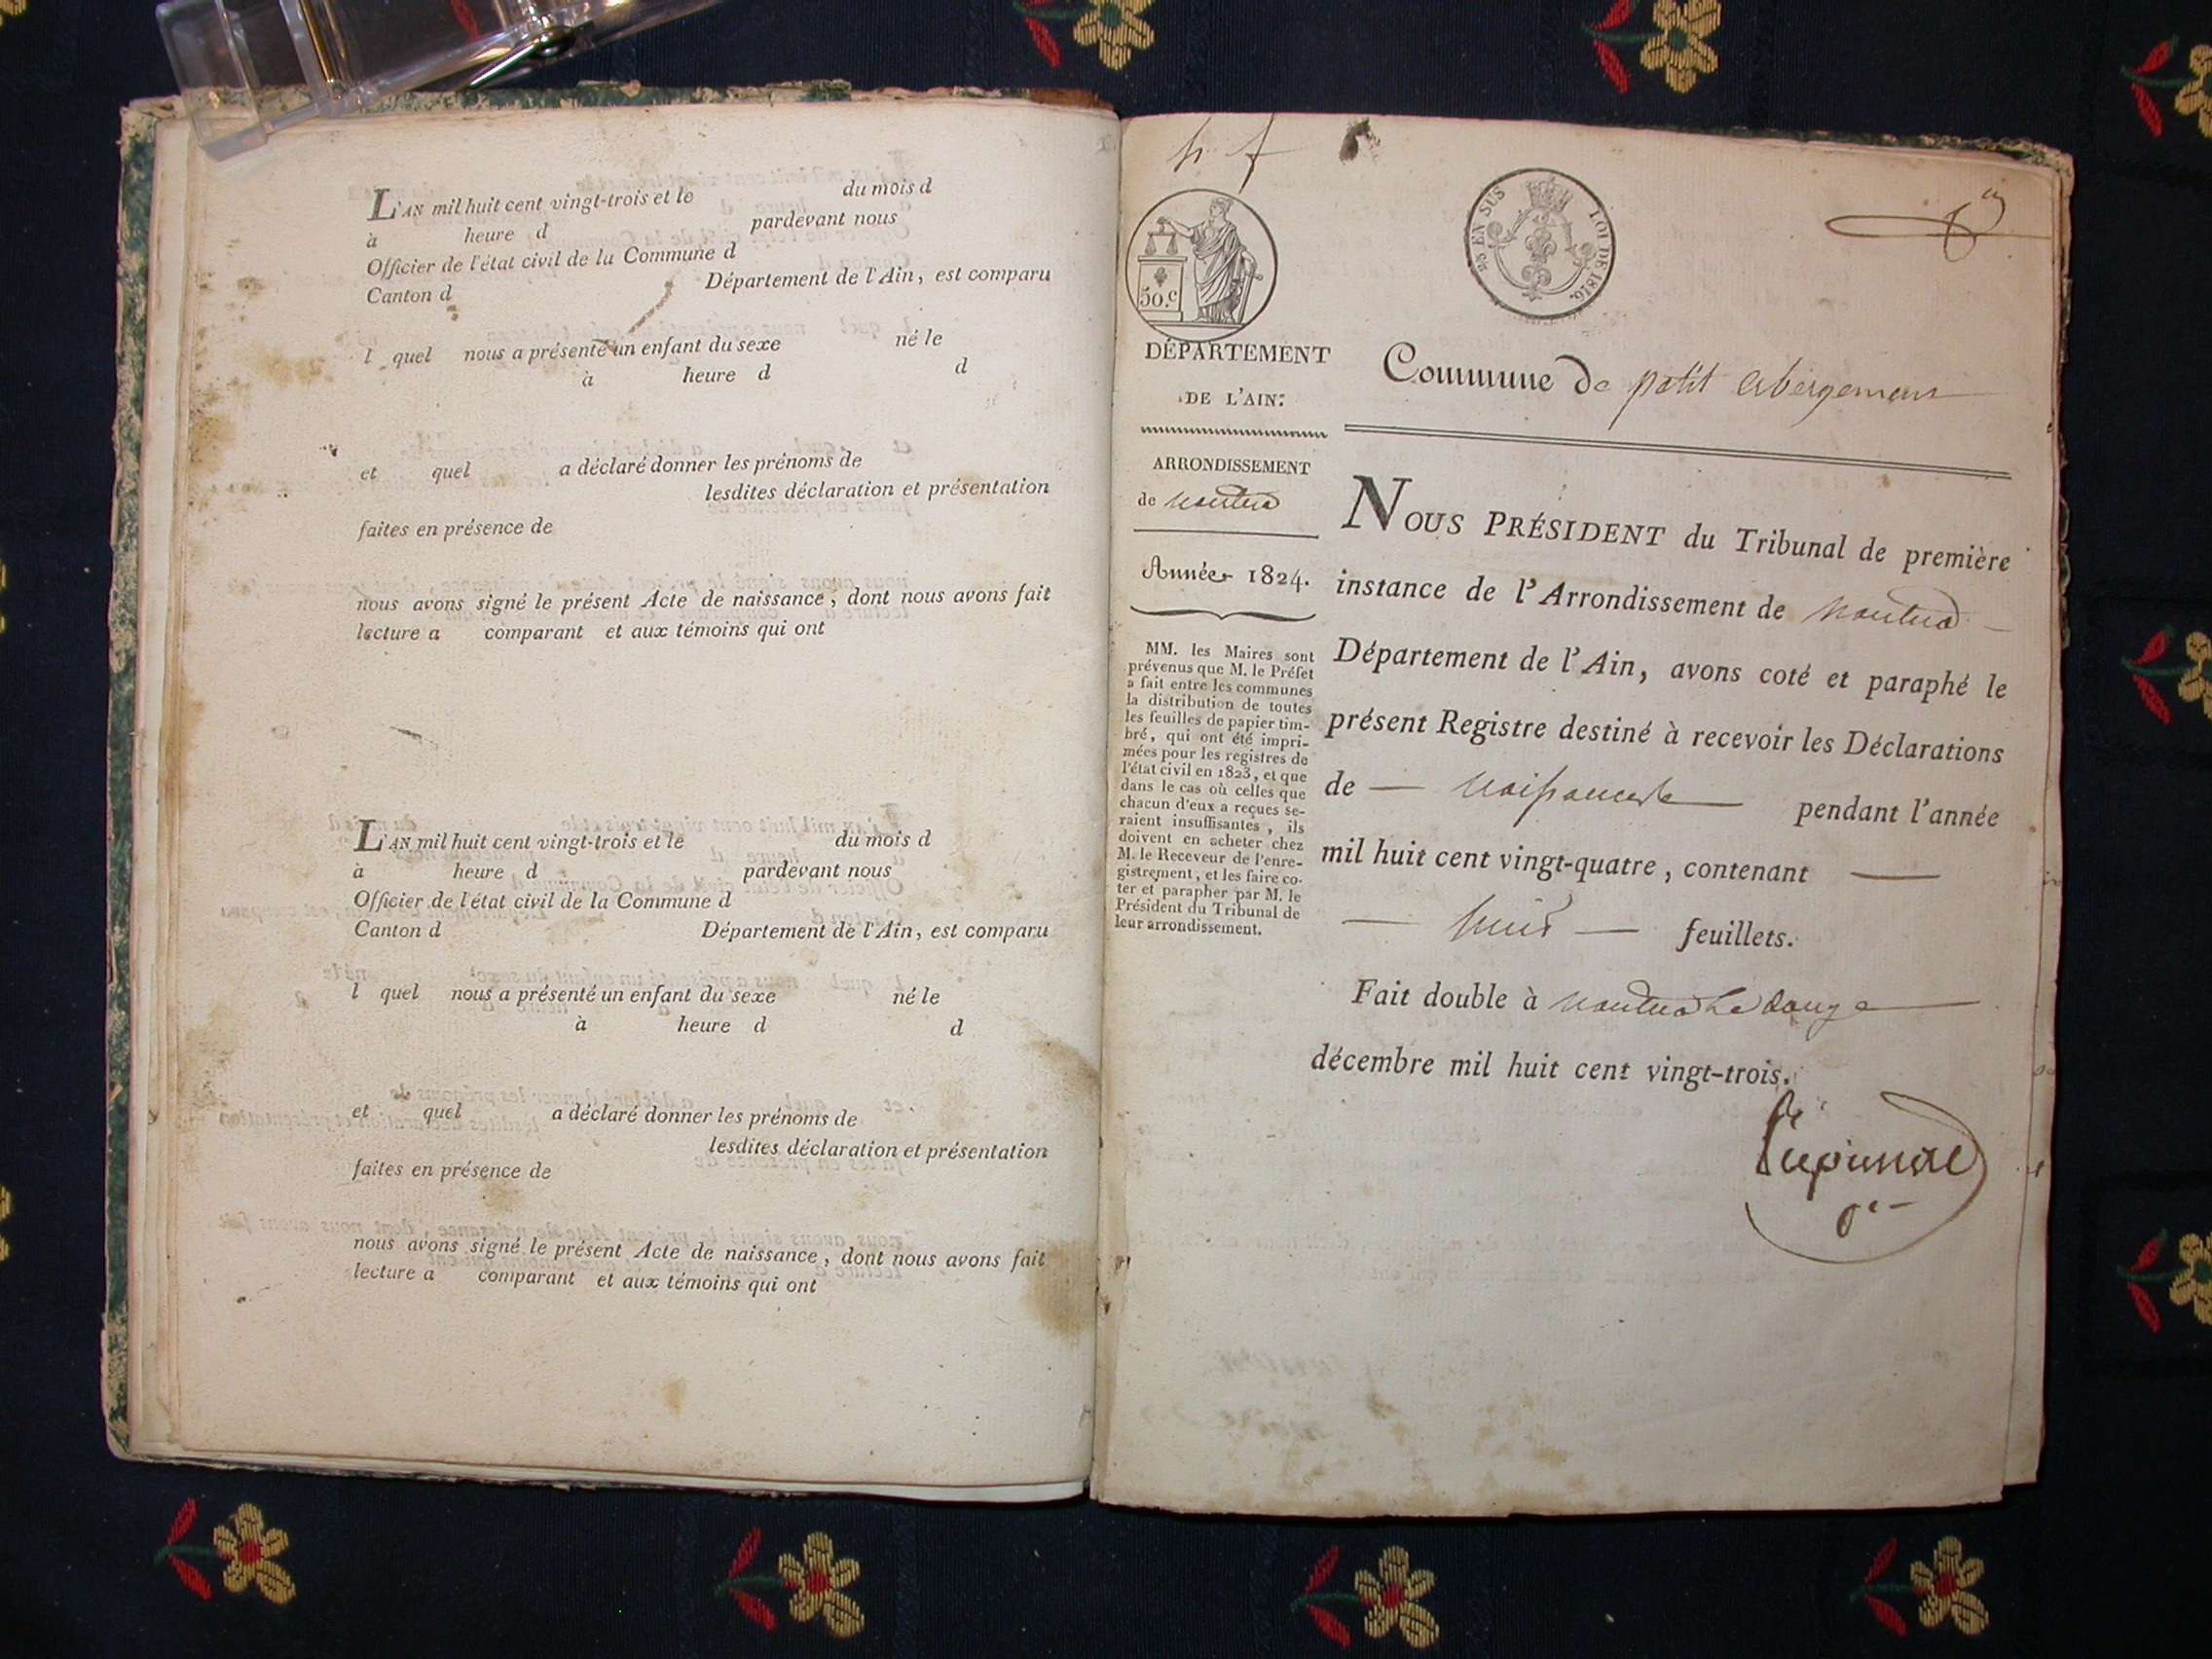 L'AN mil huit cent vingt-trois et le du mois d
à heure d pardevant nous
Officier de l'état civil de la Commune d
Canton d Département de l'Ain, est comparu
l quel nous a présenté un enfant du sexe né le
à heure d d
et quel a déclaré donner les prénoms de
lesdites déclaration et présentation
faites en présence de
nous avons signé le présent Acte de naissance, dont nous avons fait
lecture a comparant et aux témoins qui ont
L'AN mil huit cent vingt-trois et le du mois d
à heure d pardevant nous
Officier de l'état civil de la Commune d
Canton d Département de l'Ain, est comparu
l quel nous a présenté un enfant du sexe né le
à heure d d
et quel a déclaré donner les prénoms de
lesdites déclaration et présentation
faites en présence de
nous avons signé le présent Acte de naissance, dont nous avons fait
lecture a comparant et aux témoins qui ont
50.c
EN SUS LOI DE 1816.
DÉPARTEMENT
DE L'AIN.
ARRONDISSEMENT
de nantua
Année 1824.
MM. les Maires sont
prévenus que M. le Préfet
a fait entre les communes
la distribution de toutes
les feuilles de papier tim-
bré, qui ont été impri-
mées pour les registres de
l'état civil en 1823, et que
dans le cas où celles que
chacun d'eux a reçues se-
raient insuffisantes, ils
doivent en acheter chez
M. le Receveur de l'enre-
gistrement, et les faire co-
ter et parapher par M. le
Président du Tribunal de
leur arrondissement.
Commune de petit abergement
NOUS PRÉSIDENT du Tribunal de première
instance de l'Arrondissement de nantua
Département de l'Ain, avons coté et paraphé le
présent Registre destiné à recevoir les Déclarations
de — naissances — pendant l'année
mil huit cent vingt-quatre, contenant —
— huit — feuillets.
Fait double à nantua le douze
décembre mil huit cent vingt-trois.